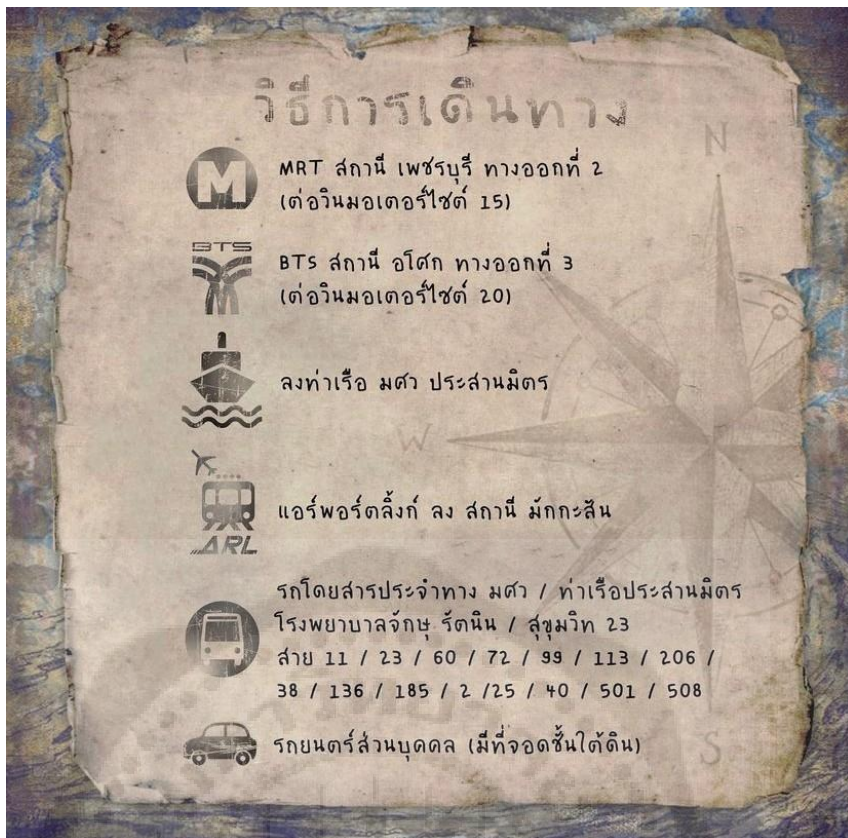 วิธีการเดินทาง
N
M
MRT สถานี เพชรบุรี ทางออกที่ 2
(ต่อวินมอเตอร์ไซต์ 15)
BTS
BTS สถานี อโศก ทางออกที่ 3
(ต่อวินมอเตอร์ไซต์ 20)
ลงท่าเรือ มศว ประสานมิตร
W
แอร์พอร์ตลิ้งก์ ลง สถานี มักกะสัน
ARL
รถโดยสารประจำทาง มศว / ท่าเรือประสานมิตร
โรงพยาบาลจักษุ รัตนิน / สุขุมวิท 23
สาย 11 / 23 / 60 / 72 / 99 / 113 / 206 /
38 / 136 / 185 / 2 /25 / 40 / 501 / 508
รถยนตร์ส่วนบุคคล (มีที่จอดชั้นใต้ดิน)
S